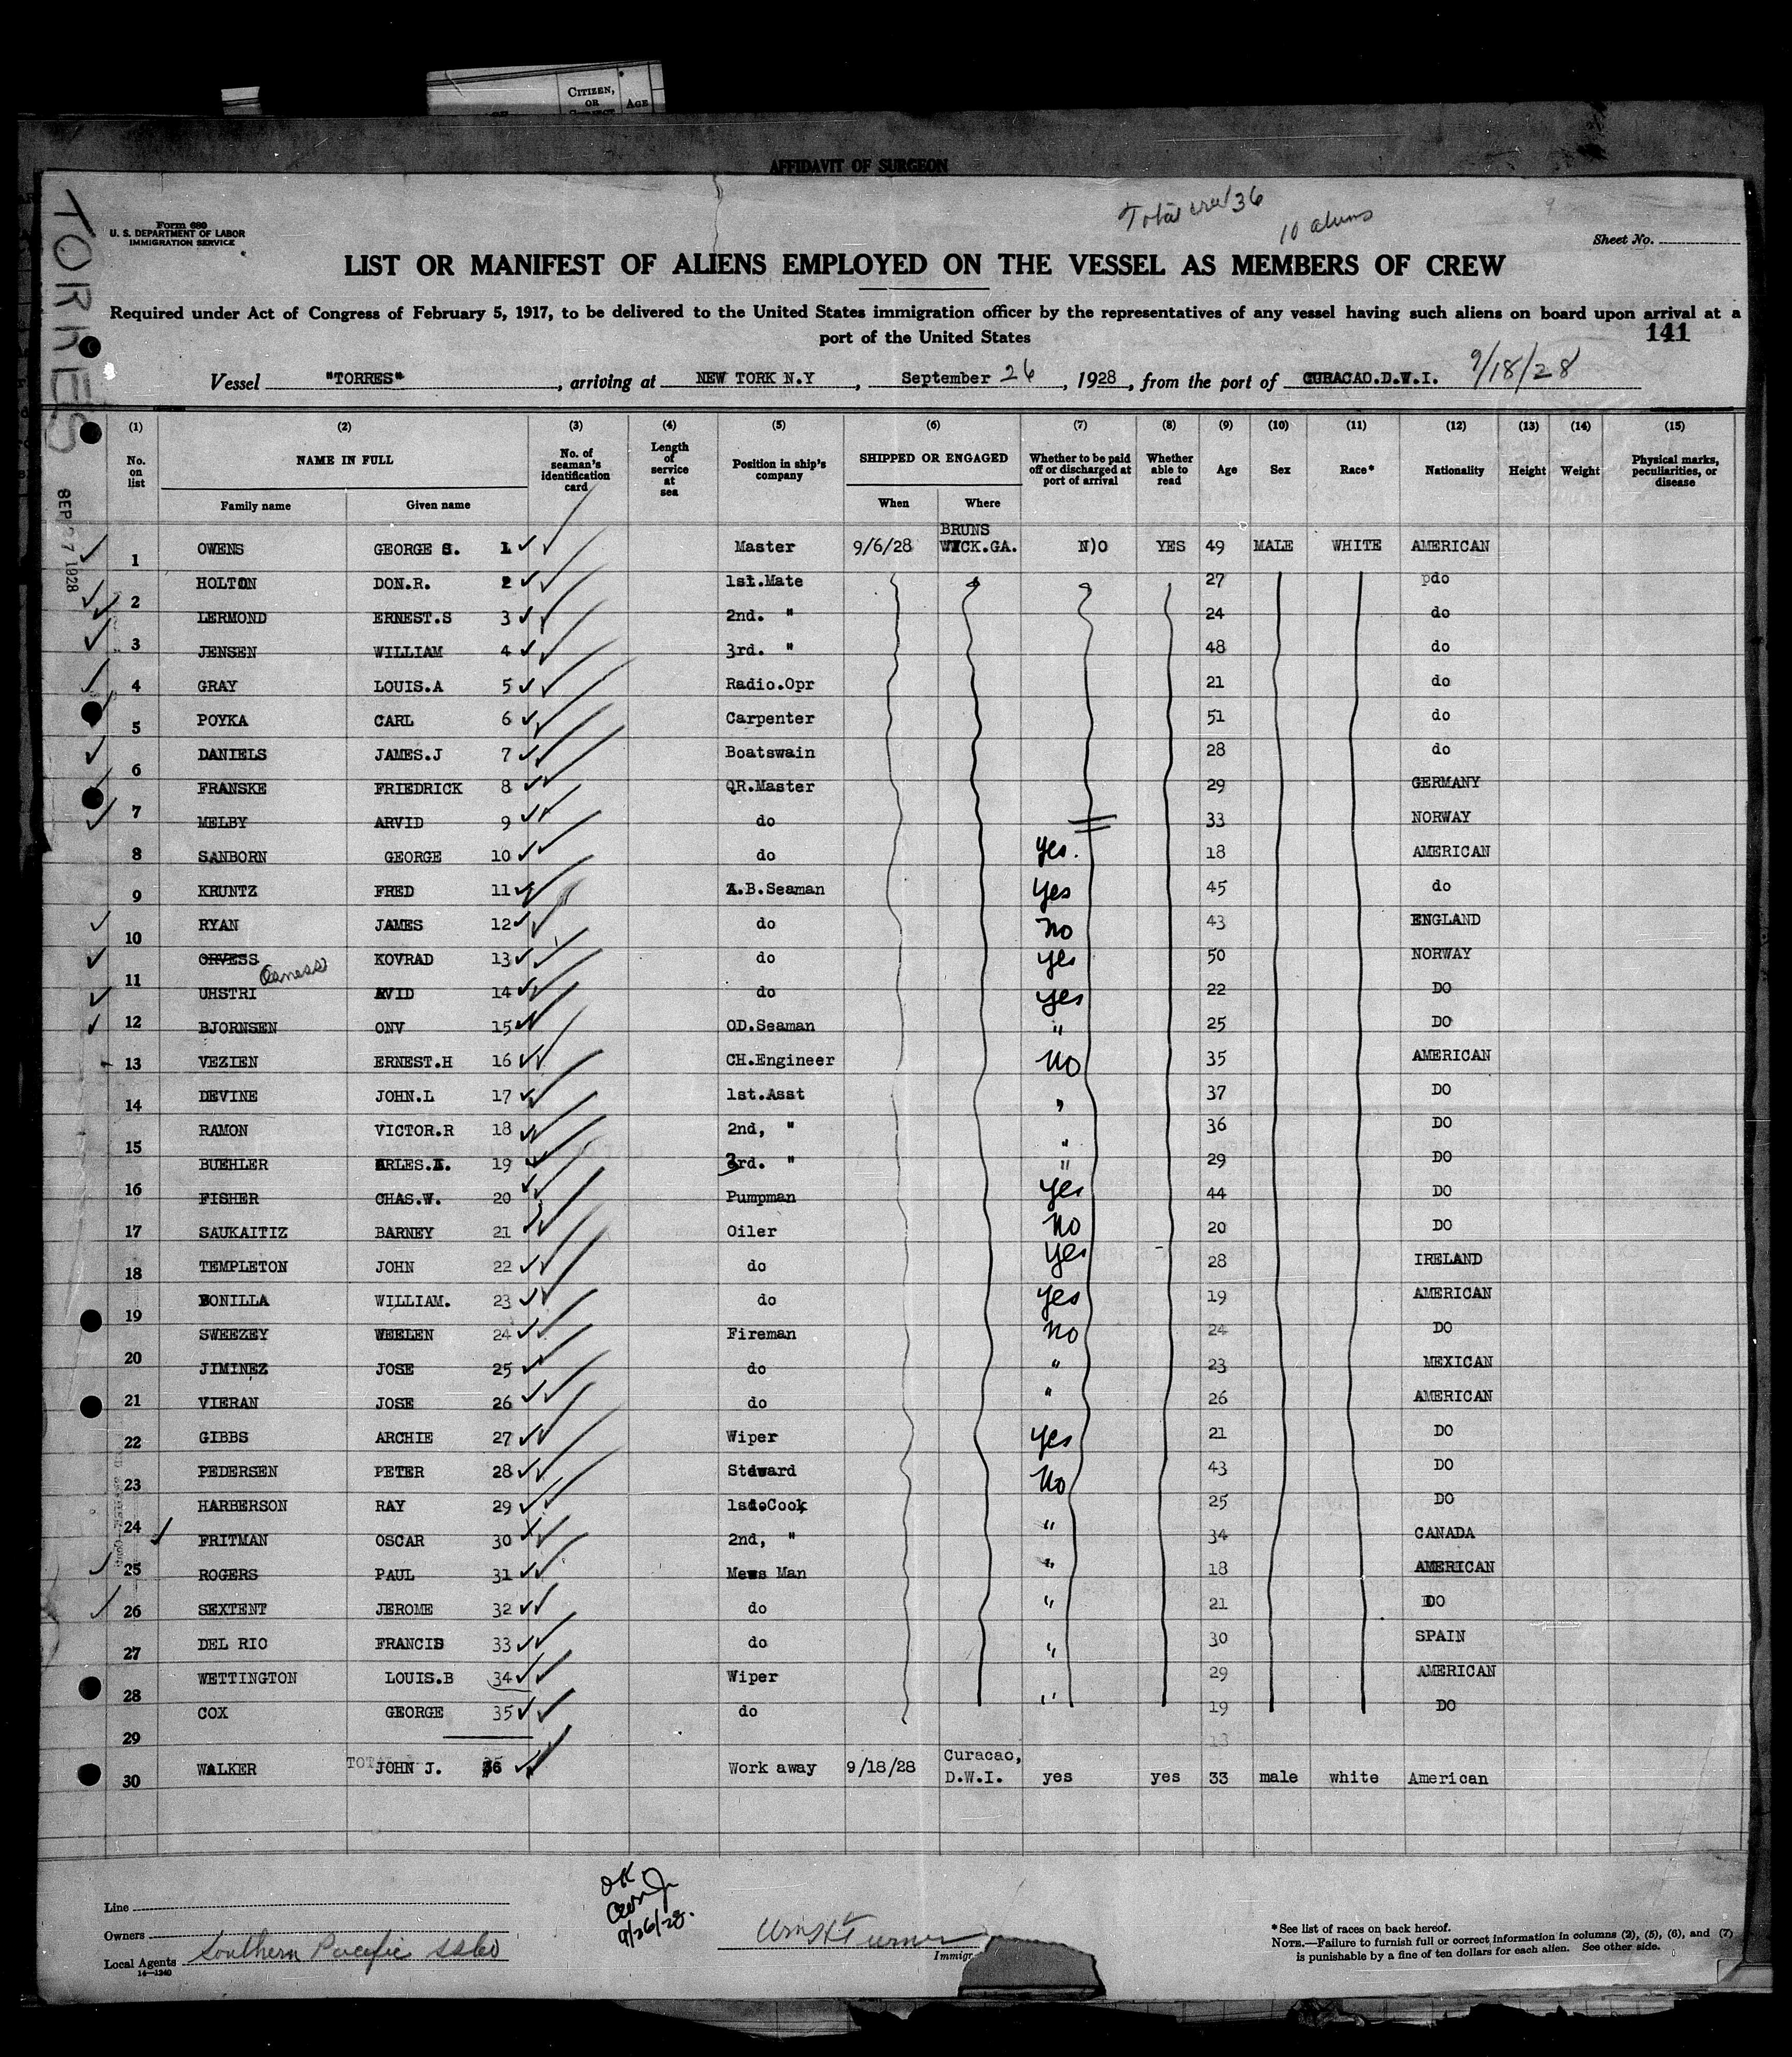 CITIZEN,
OR
AGE
AFFIDAVIT OF SURGEON
Total crew 36
10 aliens
TORRES
Form 680
U. S. DEPARTMENT OF LABOR
IMMIGRATION SERVICE
Sheet No.
LIST OR MANIFEST OF ALIENS EMPLOYED ON THE VESSEL AS MEMBERS OF CREW
Required under Act of Congress of February 5, 1917, to be delivered to the United States immigration officer by the representatives of any vessel having such aliens on board upon arrival at a
port of the United States
141
Vessel "TORRES", arriving at NEW YORK N.Y, September 26, 1928, from the port of CURACAO.D.W.I. 9/18/28
(1) (2) (3) (4) (5) (6) (7) (8) (9) (10) (11) (12) (13) (14) (15)
No. on list NAME IN FULL No. of seaman's identification card Length of service at sea Position in ship's company SHIPPED OR ENGAGED Whether to be paid off or discharged at port of arrival Whether able to read Age Sex Race* Nationality Height Weight Physical marks, peculiarities, or disease
Family name Given name When Where
SEP 27 1928
1 OWENS GEORGE S. 1 Master 9/6/28 BRUNS WICK.GA. N)O YES 49 MALE WHITE AMERICAN
2 HOLTON DON.R. 2 1st.Mate 27 do
LERMOND ERNEST.S 3 2nd. " 24 do
3 JENSEN WILLIAM 4 3rd. " 48 do
4 GRAY LOUIS.A 5 Radio.Opr 21 do
5 POYKA CARL 6 Carpenter 51 do
DANIELS JAMES.J 7 Boatswain 28 do
6 FRANSKE FRIEDRICK 8 QR.Master 29 GERMANY
7 MELBY ARVID 9 do 33 NORWAY
8 SANBORN GEORGE 10 do yes. 18 AMERICAN
9 KRUNTZ FRED 11 A.B.Seaman yes 45 do
RYAN JAMES 12 do no 43 ENGLAND
10 ORVESS Osness KOVRAD 13 do yes 50 NORWAY
11 UHSTRI AVID 14 do yes 22 DO
12 BJORNSEN ONV 15 OD.Seaman " 25 DO
13 VEZIEN ERNEST.H 16 CH.Engineer no 35 AMERICAN
14 DEVINE JOHN.L 17 1st.Asst " 37 DO
RAMON VICTOR.R 18 2nd, " " 36 DO
15 BUEHLER ARLES.A. 19 3rd. " " 29 DO
16 FISHER CHAS.W. 20 Pumpman yes 44 DO
17 SAUKAITIZ BARNEY 21 Oiler no 20 DO
18 TEMPLETON JOHN 22 do yes 28 IRELAND
BONILLA WILLIAM. 23 do yes 19 AMERICAN
19 SWEEZEY WEELEN 24 Fireman no 24 DO
20 JIMINEZ JOSE 25 do " 23 MEXICAN
21 VIERAN JOSE 26 do " 26 AMERICAN
22 GIBBS ARCHIE 27 Wiper yes 21 DO
PEDERSEN PETER 28 Steward no 43 DO
23 HARBERSON RAY 29 Cook 25 DO
24 FRITMAN OSCAR 30 2nd, " " 34 CANADA
25 ROGERS PAUL 31 Mews Man " 18 AMERICAN
26 SEXTENT JEROME 32 do " 21 DO
DEL RIO FRANCIS 33 do " 30 SPAIN
27 WETTINGTON LOUIS.B 34 Wiper 29 AMERICAN
28 COX GEORGE 35 do " 19 DO
29
30 WALKER JOHN J. 36 Work away 9/18/28 Curacao, D.W.I. yes yes 33 male white American
Line
Owners
Local Agents Southern Pacific SSCo
14—1240
OK
9/26/28.
Wm H Turner
Immigr
*See list of races on back hereof.
NOTE.—Failure to furnish full or correct information in columns (2), (5), (6), and (7)
is punishable by a fine of ten dollars for each alien. See other side.